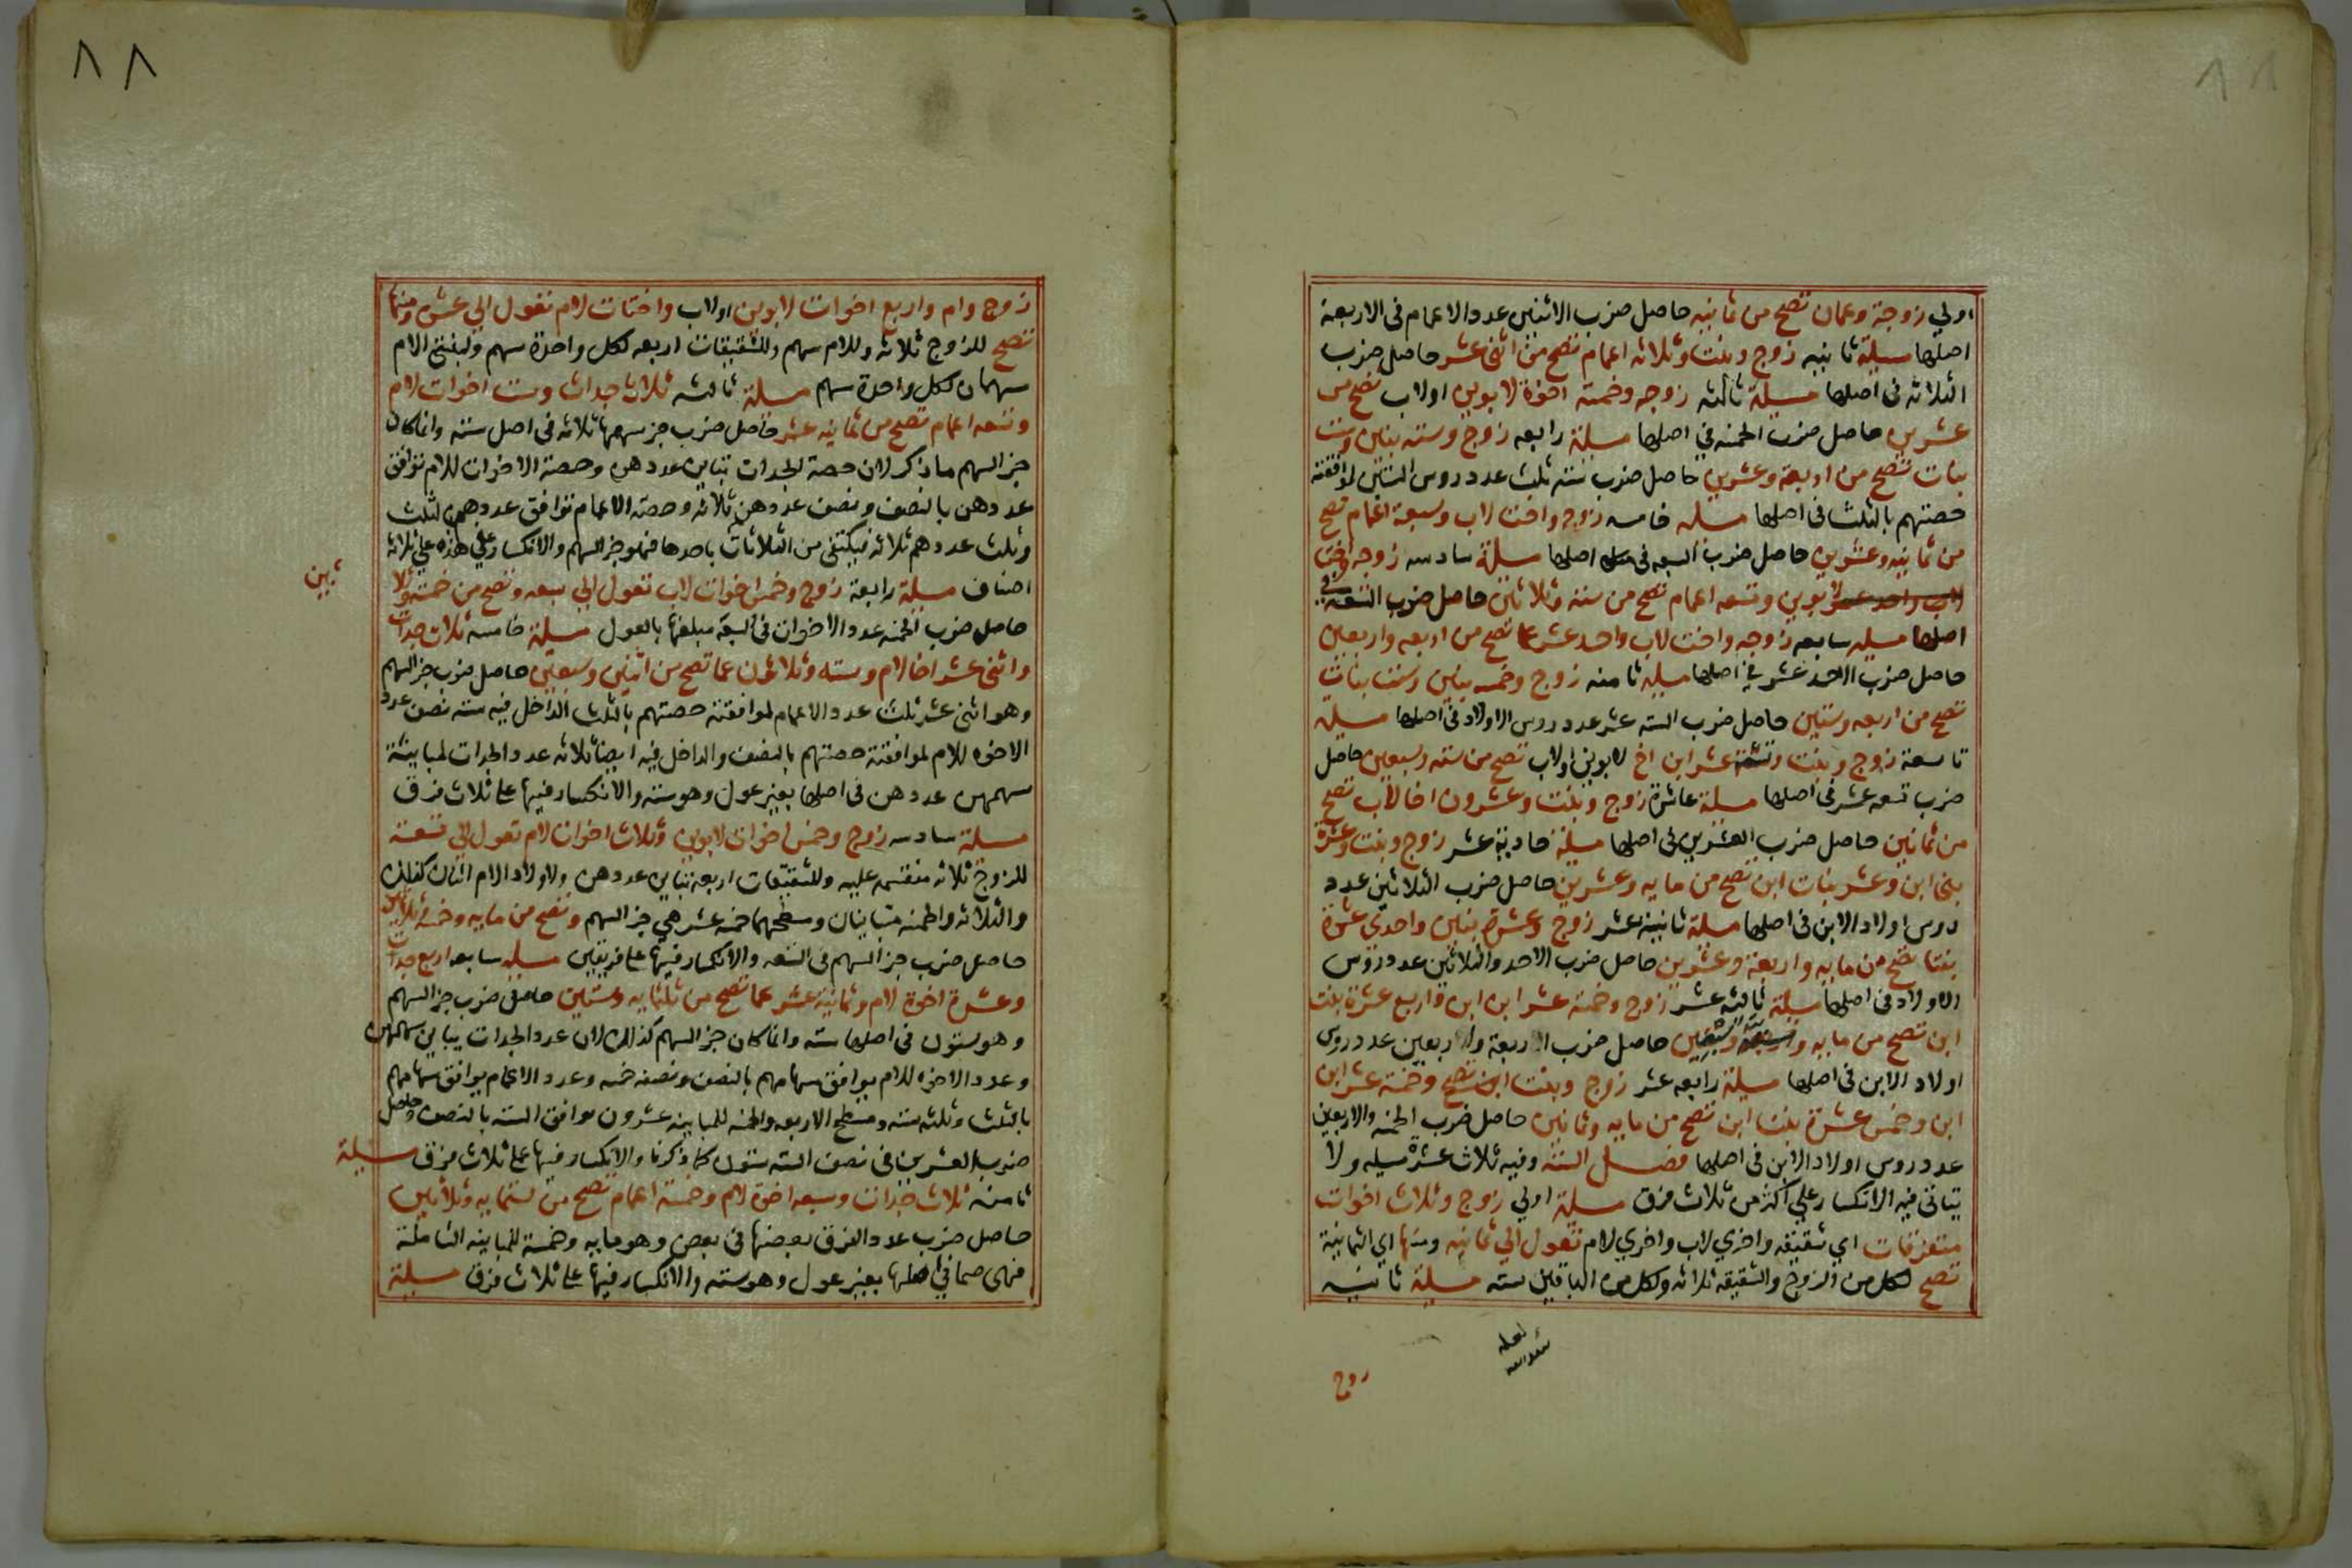 اولي زوجة وعمان تصح من ثمانيه حاصل ضرب الاثنين عدد الاعمام في الاربعة
اصلها مسيلة ثانيه زوج وبنت وثلاثه اعمام تصح من اثني عشر حاصل ضرب
الثلاثه في اصلها مسيلة ثالثه زوجه وخمسة اخوة لابوين او لاب تصح من
عشرين حاصل ضرب الخمسه في اصلها مسيلة رابعه زوج وسته بنين وست
بنات تصح من اربعة وعشرين حاصل ضرب سته ثلث عدد روس البنين لموافقة
حصتهم بالثلث في اصلها مسله خامسه زوج واخت لاب وسبعة اعمام تصح
من ثمانيه وعشرين حاصل ضرب السبعه في اصلها مسلة سادسه زوجه واخت
لابوين وتسعه اعمام تصح من سته وثلاثين حاصل ضرب التسعه في
اصلها مسيله سابعه زوجه واخت لاب واحد عشر عما تصح من اربعه واربعين
حاصل ضرب الاحد عشر في اصلها مسيلة ثامنه زوج وخمسه بنين وست بنات
تصح من اربعه وستين حاصل ضرب السته عشر عدد روس الاولاد في اصلها مسيلة
تاسعة زوج وبنت وتسعة عشر ابن اخ لابوين او لاب تصح من سته وسبعين حاصل
ضرب تسعه عشر في اصلها مسيلة عاشرة زوج وبنت وعشرون اخا لاب تصح
من ثمانين حاصل ضرب العشرين في اصلها مسيلة حادية عشر زوج وبنت وعشرة
بني ابن وعشر بنات ابن تصح من مايه وعشرين حاصل ضرب الثلاثين عدد
روس اولاد الابن في اصلها مسلة ثانية عشر زوج وعشرة بنين واحدي عشرة
بنتا تصح من مايه واربعة وعشرين حاصل ضرب الاحد والثلاثين عدد روس
الاولاد في اصلها مسيلة ثالثه عشر زوج وخمسة عشر ابن ابن واربع عشرة بنت
ابن تصح من مايه وستة وسبعين حاصل ضرب الاربعة والاربعين عدد روس
اولاد الابن في اصلها مسيلة رابعه عشر زوج وبنت ابن تصح وخمسة عشر ابن
ابن وخمس عشرة بنت ابن تصح من مايه وثمانين حاصل ضرب الخمسه والاربعين
عدد روس اولاد الابن في اصلها فصل الستة وفيه ثلاث عشرة مسيله ولا
يتاتي فيه الانكسار علي اكثر من ثلاث فرق مسيلة اولي زوج وثلاث اخوات
متفرقات اي شقيقه واخري لاب واخري لام تعول الي ثمانيه ومنها اي الثمانية
تصح لكل من الزوج والشقيقه ثلاثه ولكل من الباقين سته مسيلة ثانيه
لعله
زوج
٨٨
زوج وام واربع اخوات لابوين او لاب واختان لام تعول الي عشر ومنها
تصح للزوج ثلاثه وللام سهم وللشقيقات اربعه لكل واحدة سهم ولبنتي الام
سهمان لكل واحدة سهم مسلة ثالثه ثلاث جدات وست اخوات لام
وتسعه اعمام تصح من ثمانيه عشر حاصل ضرب جز سهمها ثلاثه في اصل سته وانما كان
جز السهم ما ذكر لان حصة الجدات تباين عددهن وحصة الاخوات للام توافق
عددهن بالنصف ونصف عددهن ثلاثه وحصة الاعمام توافق عددهم بالثلث
وثلث عددهم ثلاثه فيكتفي من الثلاثات باحدها فهو جز السهم والانكسار علي هذه علي ثلاثه
اصناف مسيلة رابعة زوج وخمس اخوات لاب تعول الي سبعه وتصح من خمسه وثلا
ثين
حاصل ضرب الخمسه عدد الاخوات في السبعة مبلغها بالعول مسيلة خامسه ثلاث جدات
واثني عشر اخا لام وسته وثلاثون عما تصح من اثنين وسبعين حاصل ضرب جز السهم
وهو اثني عشر ثلث عدد الاعمام لموافقة حصتهم بالثلث الداخل فيه سته نصف عدد
الاخوه للام لموافقة حصتهم بالنصف والداخل فيه ايضا ثلاثه عدد الجدات لمباينة
سهمهن عددهن في اصلها بغير عول وهو سته والانكسار فيها علي ثلاث فرق
مسلة سادسه زوج وخمس اخوات لابوين وثلاث اخوات لام تعول الي تسعة
للزوج ثلاثه منقسمه عليه وللشقيقات اربعه تباين عددهن ولاولاد الام اثنان كذلك
والثلاثه والخمسه متباينان ومسطحهما خمسه عشر هي جز السهم وتصح من مايه وخمسة وثلاثين
حاصل ضرب جز السهم في التسعه والانكسار فيها علي فريقين مسيله سابعه اربع جدات
وعشرة اخوة لام وثمانية عشر عما تصح من ثلثمايه وستين حاصل ضرب جز السهم
وهو ستون في اصلها سته وانما كان جز السهم كذلك لان عدد الجدات يباين سهامهن
وعدد الاخوه للام يوافق سهامهم بالنصف ونصفه خمسه وعدد الاعمام يوافق سهامهم
بالثلث وثلثه سته ومسطح الاربعه والخمسه للمباينه عشرون توافق السته بالنصف وحاصل
ضرب العشرين في نصف السته ستون كما ذكرنا والانكسار فيها علي ثلاث فرق مسيلة
ثامنه ثلاث جدات وسبعه اخوة لام وخمسة اعمام تصح من ستمايه وثلاثين
حاصل ضرب عدد الفرق بعضها في بعض وهو مايه وخمسة للمباينه الشاملة
فهي صما في اصلها بغير عول وهو سته والانكسار فيها علي ثلاث فرق مسيلة